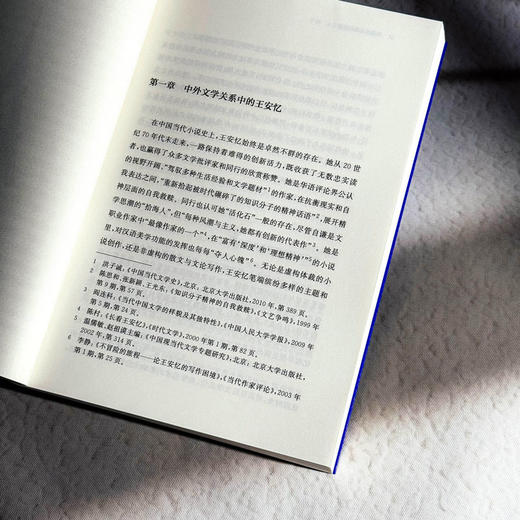 第一章 中外文学关系中的王安忆
在中国当代小说史上，王安忆始终是卓然不群的存在。她从20世
纪70年代末走来，一路保持着难得的创新活力，既收获了无数忠实读
者，也赢得了众多文学批评家和同行的欣赏称赞。她是华语评论界公认的
的视野开阔、“驾驭多种生活经验和文学题材”¹的作家，在抗衡现实和自
我表达之间，“重新拾起被时代碾碎了的知识分子的精神话语”²，展开精
神层面的自我救赎，同行也认可她“活化石”一般的存在，尽管自谦是文
学思潮的“拾海人”，但“每种风潮与主义，她都有创新的代表作”³。她是
职业作家中“最像作家的一个”⁴，在“富有‘深度’和‘理想精神’”⁵的小说
里，对汉语美学功能的发挥也每每“夺人心魄”⁶。无论是虚构体裁的小
说创作，还是非虚构的散文与文论写作，王安忆笔端缤纷多样的主题和
1 洪子诚，《中国当代文学史》，北京：北京大学出版社，2010年，第389页。
2 陈思和、张新颖、王光东，《知识分子精神的自我救赎》，《文艺争鸣》，1999年
第5期，第57页。
3 阎连科：《当代中国文学的样貌及其独特性》，《中国人民大学学报》，2009年
第5期，第24页。
4 陈村，《长看王安忆》，《时代文学》，2000年第1期，第82页。
5 温儒敏、赵祖谟主编：《中国现当代文学专题研究》，北京：北京大学出版社，
2002年，第314页。
6 李静，《不冒险的旅程——论王安忆的写作困境》，《当代作家评论》，2003年
第1期，第25页。